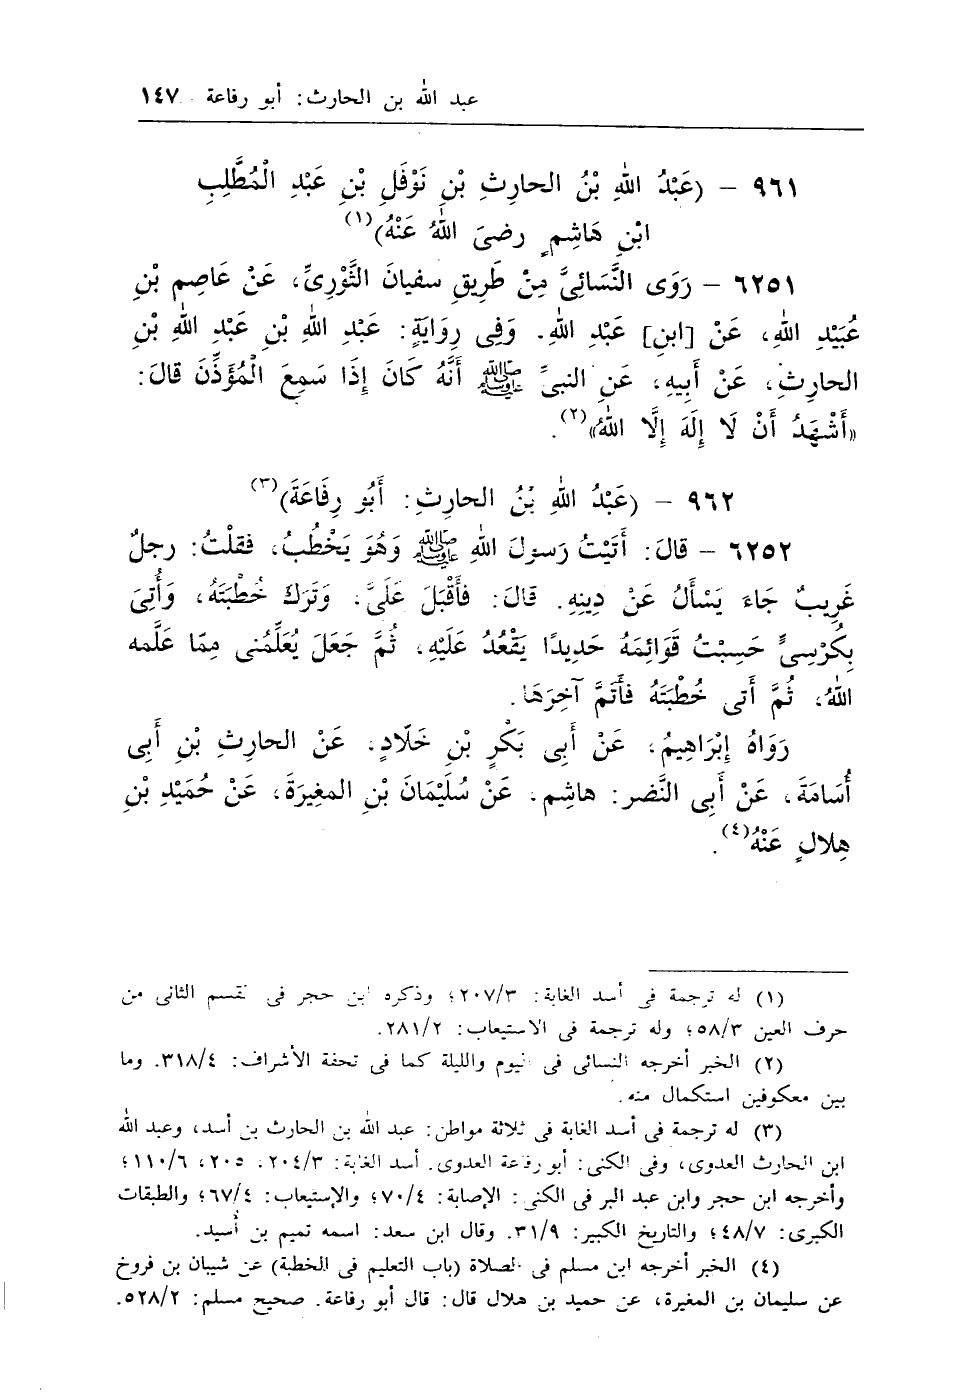 عبد الله بن الحارث: أبو رفاعة - ١٤٧
٩٦١ - (عَبْدُ اللهِ بْنُ الحارِثِ بْنِ نَوْفَلِ بْنِ عَبْدِ الْمُطَّلِبِ
ابْنِ هَاشِمٍ رضىَ اللهُ عَنْهُ)(١)
٦٢٥١ - رَوَى النَّسَائِىُّ مِنْ طَرِيقِ سفيانَ الثَّوْرِىِّ، عَنْ عَاصِمِ بْنِ
عُبَيْدِ اللهِ، عَنْ [ابنِ] عَبْدِ اللهِ. وَفِى رِوَايَةٍ: عَبْدِ اللهِ بْنِ عَبْدِ اللهِ بْنِ
الحارِثِ، عَنْ أَبِيهِ، عَنِ النبىِّ ﷺ أَنَّهُ كَانَ إِذَا سَمِعَ الْمُؤَذِّنَ قالَ:
«أَشْهَدُ أَنْ لَا إِلَهَ إِلَّا اللهُ»(٢).
٩٦٢ - (عَبْدُ اللهِ بْنُ الحارِثِ: أَبُو رِفَاعَةَ)(٣)
٦٢٥٢ - قالَ: أَتَيْتُ رَسولَ اللهِ ﷺ وَهُوَ يَخْطُبُ، فَقلْتُ: رجلٌ
غَرِيبٌ جَاءَ يَسْأَلُ عَنْ دِينِهِ. قالَ: فأَقْبَلَ عَلَىَّ، وَتَرَكَ خُطْبَتَهُ، وَأُتِىَ
بِكُرْسِىٍّ حَسِبْتُ قَوَائِمَهُ حَدِيدًا يَقْعُدُ عَلَيْهِ، ثُمَّ جَعَلَ يُعَلِّمُنى مِمّا عَلَّمه
اللهُ، ثُمَّ أَتى خُطْبَتَهُ فأَتَمَّ آخِرَهَا.
رَوَاهُ إِبْرَاهِيمُ، عَنْ أَبِى بَكْرِ بْنِ خَلّادٍ، عَنْ الحارِثِ بْنِ أَبِى
أُسَامَةَ، عَنْ أَبِى النَّضر: هاشِمٍ، عَنْ سُلَيْمَانَ بْنِ المغِيرَةَ، عَنْ حُمَيْدِ بْنِ
هِلالٍ عَنْهُ(٤).
(١) له ترجمة فى أسد الغابة: ٢٠٧/٣؛ وذكره ابن حجر فى القسم الثانى من
حرف العين ٥٨/٣؛ وله ترجمة فى الاستيعاب: ٢٨١/٢.
(٢) الخبر أخرجه النسائى فى اليوم والليلة كما فى تحفة الأشراف: ٣١٨/٤. وما
بين معكوفين استكمال منه.
(٣) له ترجمة فى أسد الغابة فى ثلاثة مواطن: عبد الله بن الحارث بن أسد، وعبد الله
ابن الحارث العدوى، وفى الكنى: أبو رفاعة العدوى. أسد الغابة: ٢٠٤/٣، ٢٠٥، ١١٠/٦؛
وأخرجه ابن حجر وابن عبد البر فى الكنى: الإصابة: ٧٠/٤؛ والإستيعاب: ٦٧/٤؛ والطبقات
الكبرى: ٤٨/٧؛ والتاريخ الكبير: ٣١/٩. وقال ابن سعد: اسمه تميم بن أُسيد.
(٤) الخبر أخرجه ابن مسلم فى الصلاة (باب التعليم فى الخطبة) عن شيبان بن فروخ
عن سليمان بن المغيرة، عن حميد بن هلال قال: قال أبو رفاعة. صحيح مسلم: ٥٢٨/٢.